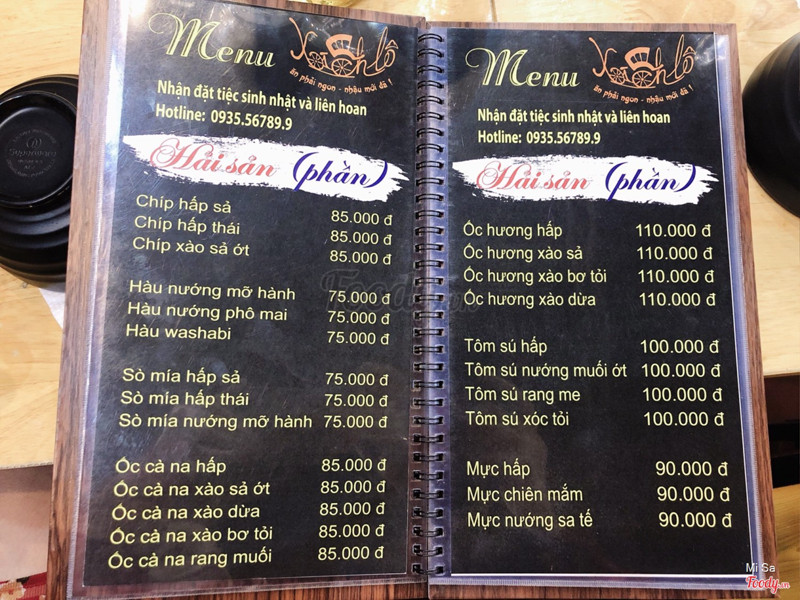 Menu
Xích lô
ăn phải ngon - nhậu mới đã !
Nhận đặt tiệc sinh nhật và liên hoan
Hotline: 0935.56789.9
Hải sản (phần)
Chíp hấp sả 85.000 đ
Chíp hấp thái 85.000 đ
Chíp xào sả ớt 85.000 đ
Hàu nướng mỡ hành 75.000 đ
Hàu nướng phô mai 75.000 đ
Hàu washabi 75.000 đ
Sò mía hấp sả 75.000 đ
Sò mía hấp thái 75.000 đ
Sò mía nướng mỡ hành 75.000 đ
Ốc cà na hấp 85.000 đ
Ốc cà na xào sả ớt 85.000 đ
Ốc cà na xào dừa 85.000 đ
Ốc cà na xào bơ tỏi 85.000 đ
Ốc cà na rang muối 85.000 đ
Menu
Xích lô
ăn phải ngon - nhậu mới đã !
Nhận đặt tiệc sinh nhật và liên hoan
Hotline: 0935.56789.9
Hải sản (phần)
Ốc hương hấp 110.000 đ
Ốc hương xào sả 110.000 đ
Ốc hương xào bơ tỏi 110.000 đ
Ốc hương xào dừa 110.000 đ
Tôm sú hấp 100.000 đ
Tôm sú nướng muối ớt 100.000 đ
Tôm sú rang me 100.000 đ
Tôm sú xóc tỏi 100.000 đ
Mực hấp 90.000 đ
Mực chiên mắm 90.000 đ
Mực nướng sa tế 90.000 đ
Mi Sa
Foody.vn